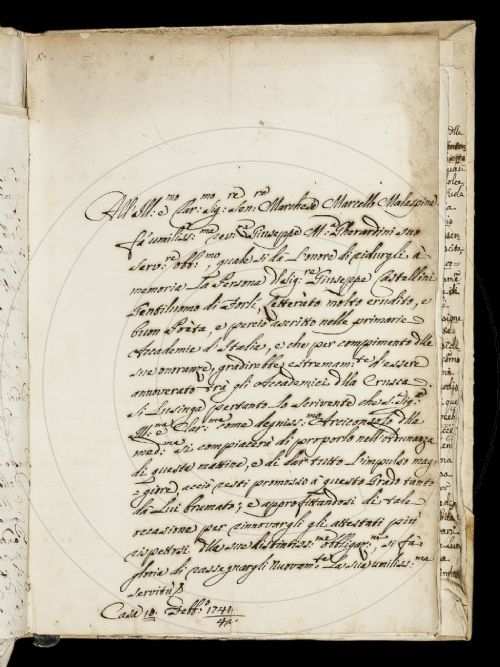 All Ill:mo e Clar:mo Sig:re Sen:re Marchese Marcello Malaspina
fà umiliss:ma river:za Giuseppe M:a Gherardini suo
Serv:re obb:mo, quale si dà l'onore di ridurgli à
memoria la Persona del Sig:re Giuseppe Castellini
Gentiluomo di Forlì, Letterato molto erudito, e
buon Poeta, e perciò ascritto nelle primarie
Accademie d'Italia, e che per compimento dlle
sue onoranze, gradirebbe estremam:te d'essere
annoverato trà gli Accademici dlla Crusca.
Si lusinga pertanto lo scrivente che S: Sig:a
Ill:ma e Clar:ma come degniss:mo Arciconsolo dlla
med:ma si compiacerà di proporlo nell'adunanza
di questa mattina, e di dar tutto l'impulso mag-
giore acciò resti promosso à questo grado tanto
da Lui bramato; e approfittandosi di tale
occasione per rinnovargli gli attestati più
rispettosi dlla sua distintiss:ma obbligan:ne, si fà
gloria di rassegnargli nuovam:te la sua umiliss:ma
servitù
Casa 10. Febb:o 1741/42.